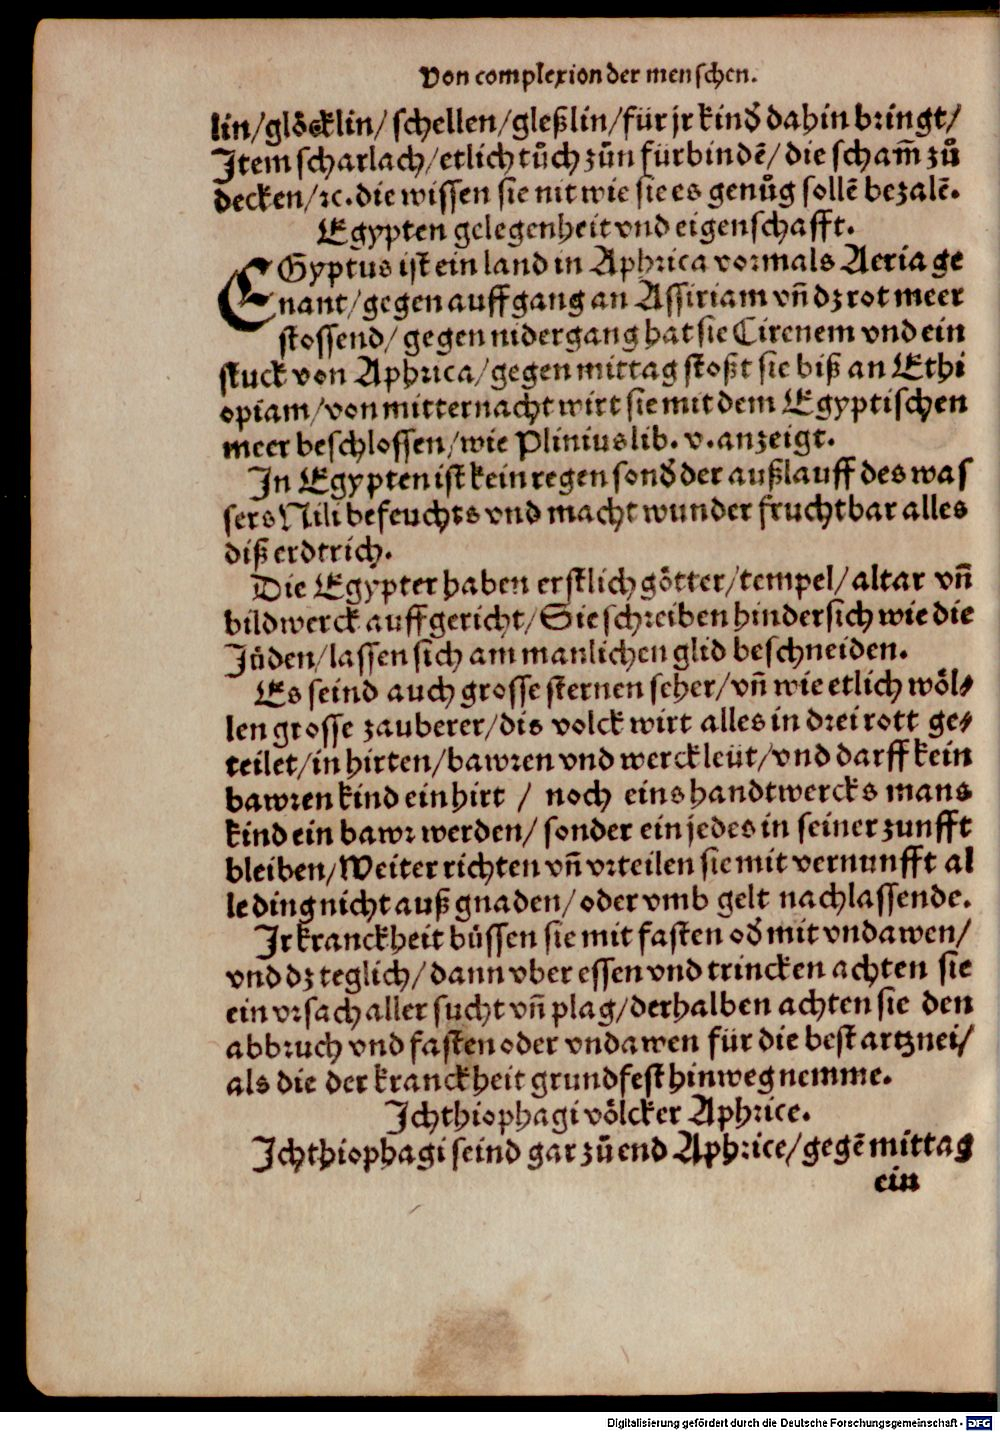 Von complexion der menschen.
lin/glöcklin/ schellen/gleßlin/für jr kind dahin bringt/
Item scharlach/etlich tůch zůn fürbindē/ die scham̄ zů
decken/ꝛc. die wissen sie nit wie sie es genůg sollē bezalē.
Egypten gelegenheit vnd eigenschafft.
EGyptus ist ein land in Aphrica vormals Aeria ge
nant/gegen auffgang an Assiriam vn̄ dz rot meer
stossend/ gegen nidergang hat sie Cirenem vnd ein
stuck von Aphrica/gegen mittag stoßt sie biß an Ethi
opiam/von mitternacht wirt sie mit dem Egyptischen
meer beschlossen/wie Plinius lib. v. anzeigt.
In Egypten ist kein regen sond̕ der außlauff des was
sers Nili befeuchts vnd macht wunder fruchtbar alles
diß erdtrich.
Die Egypter haben erstlich götter/tempel/altar vn̄
bildwerck auffgericht/Sie schreiben hindersich wie die
Jüden/lassen sich am manlichen glid beschneiden.
Es seind auch grosse sternen seher/vn̄ wie etlich wöl⸗
len grosse zauberer/dis volck wirt alles in drei rott ge⸗
teilet/in hirten/bawren vnd werckleüt/vnd darff kein
bawren kind ein hirt / noch eins handtwercks mans
kind ein bawr werden/ sonder ein jedes in seiner zunfft
bleiben/Weiter richten vn̄ vrteilen sie mit vernunfft al
le ding nicht auß gnaden/oder vmb gelt nachlassende.
Jr kranckheit büssen sie mit fasten od̕ mit vndawen/
vnd dz teglich/dann vber essen vnd trincken achten sie
ein vrsach aller sucht vn̄ plag/derhalben achten sie den
abbruch vnd fasten oder vndawen für die best artznei/
als die der kranckheit grundfest hinweg nemme.
Ichthiophagi völcker Aphrice.
Ichthiophagi seind gar zů end Aphrice/gegē mittag
ein
Digitalisierung gefördert durch die Deutsche Forschungsgemeinschaft - DFG